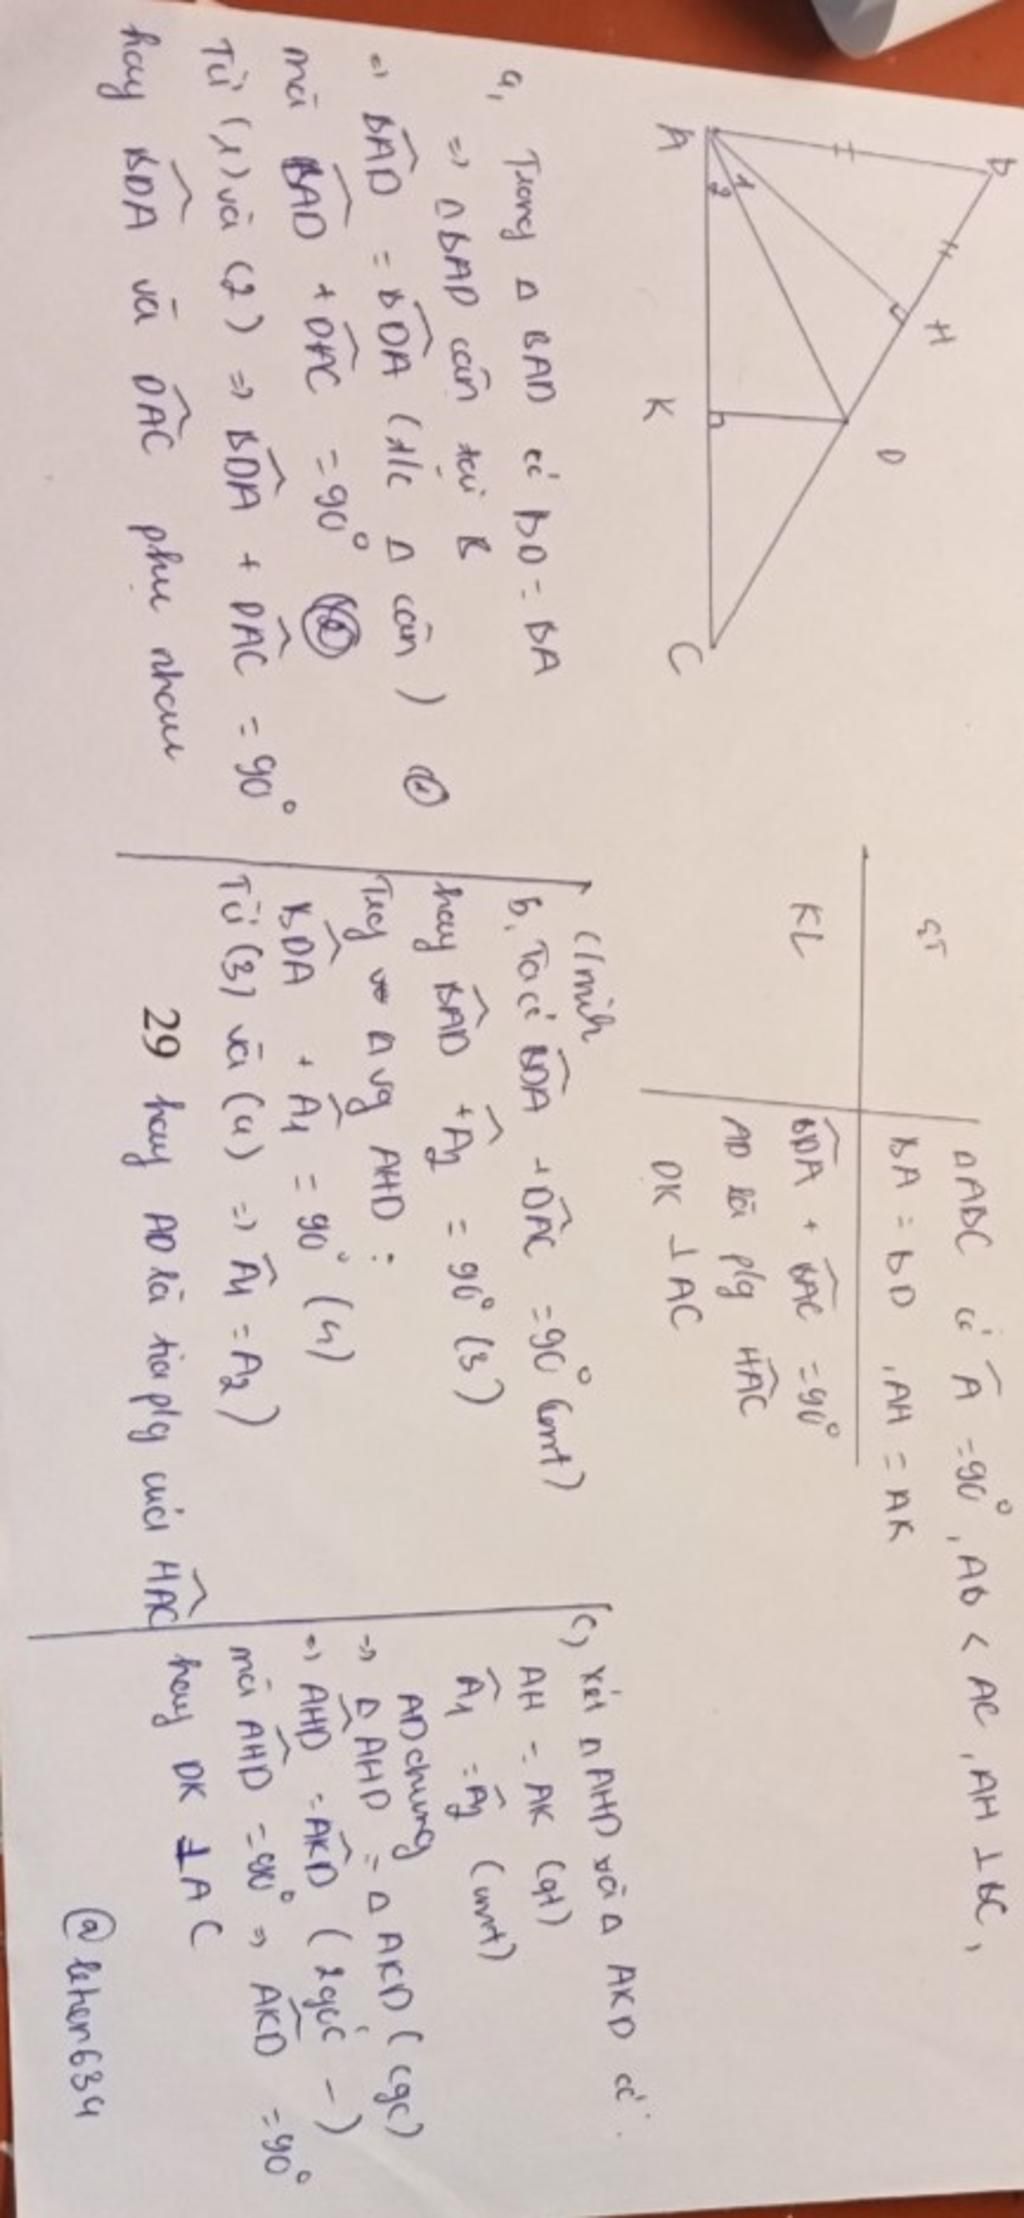 B
H
D
A
1
2
K
C
GT
ΔABC có Â = 90°, AB < AC, AH ⊥ BC,
BA = BD, AH = AK
KL
BDA + BAC = 90°
AD là p/g HAC
DK ⊥ AC
a, Trong Δ BAD có BD = BA
=> Δ BAD cân tại B
=> BAD = BDA (t/c Δ cân) (1)
mà BAD + DAC = 90° (2)
Từ (1) và (2) => BDA + DAC = 90°
hay BDA và DAC phụ nhau
C/minh
b, Ta có BDA + DAC = 90° (cmt)
hay BAD + A2 = 90° (3)
Δ vg AHD :
BDA + A1 = 90° (4)
Từ (3) và (4) => A1 = A2)
29 hay AD là tia p/g của HAC
c, Xét Δ AHD và Δ AKD có:
AH = AK (gt)
A1 = A2 (cmt)
AD chung
=> Δ AHD = Δ AKD (cgc)
=> AHD = AKD (2 góc -)
mà AHD = 90° => AKD = 90°
hay DK ⊥ AC